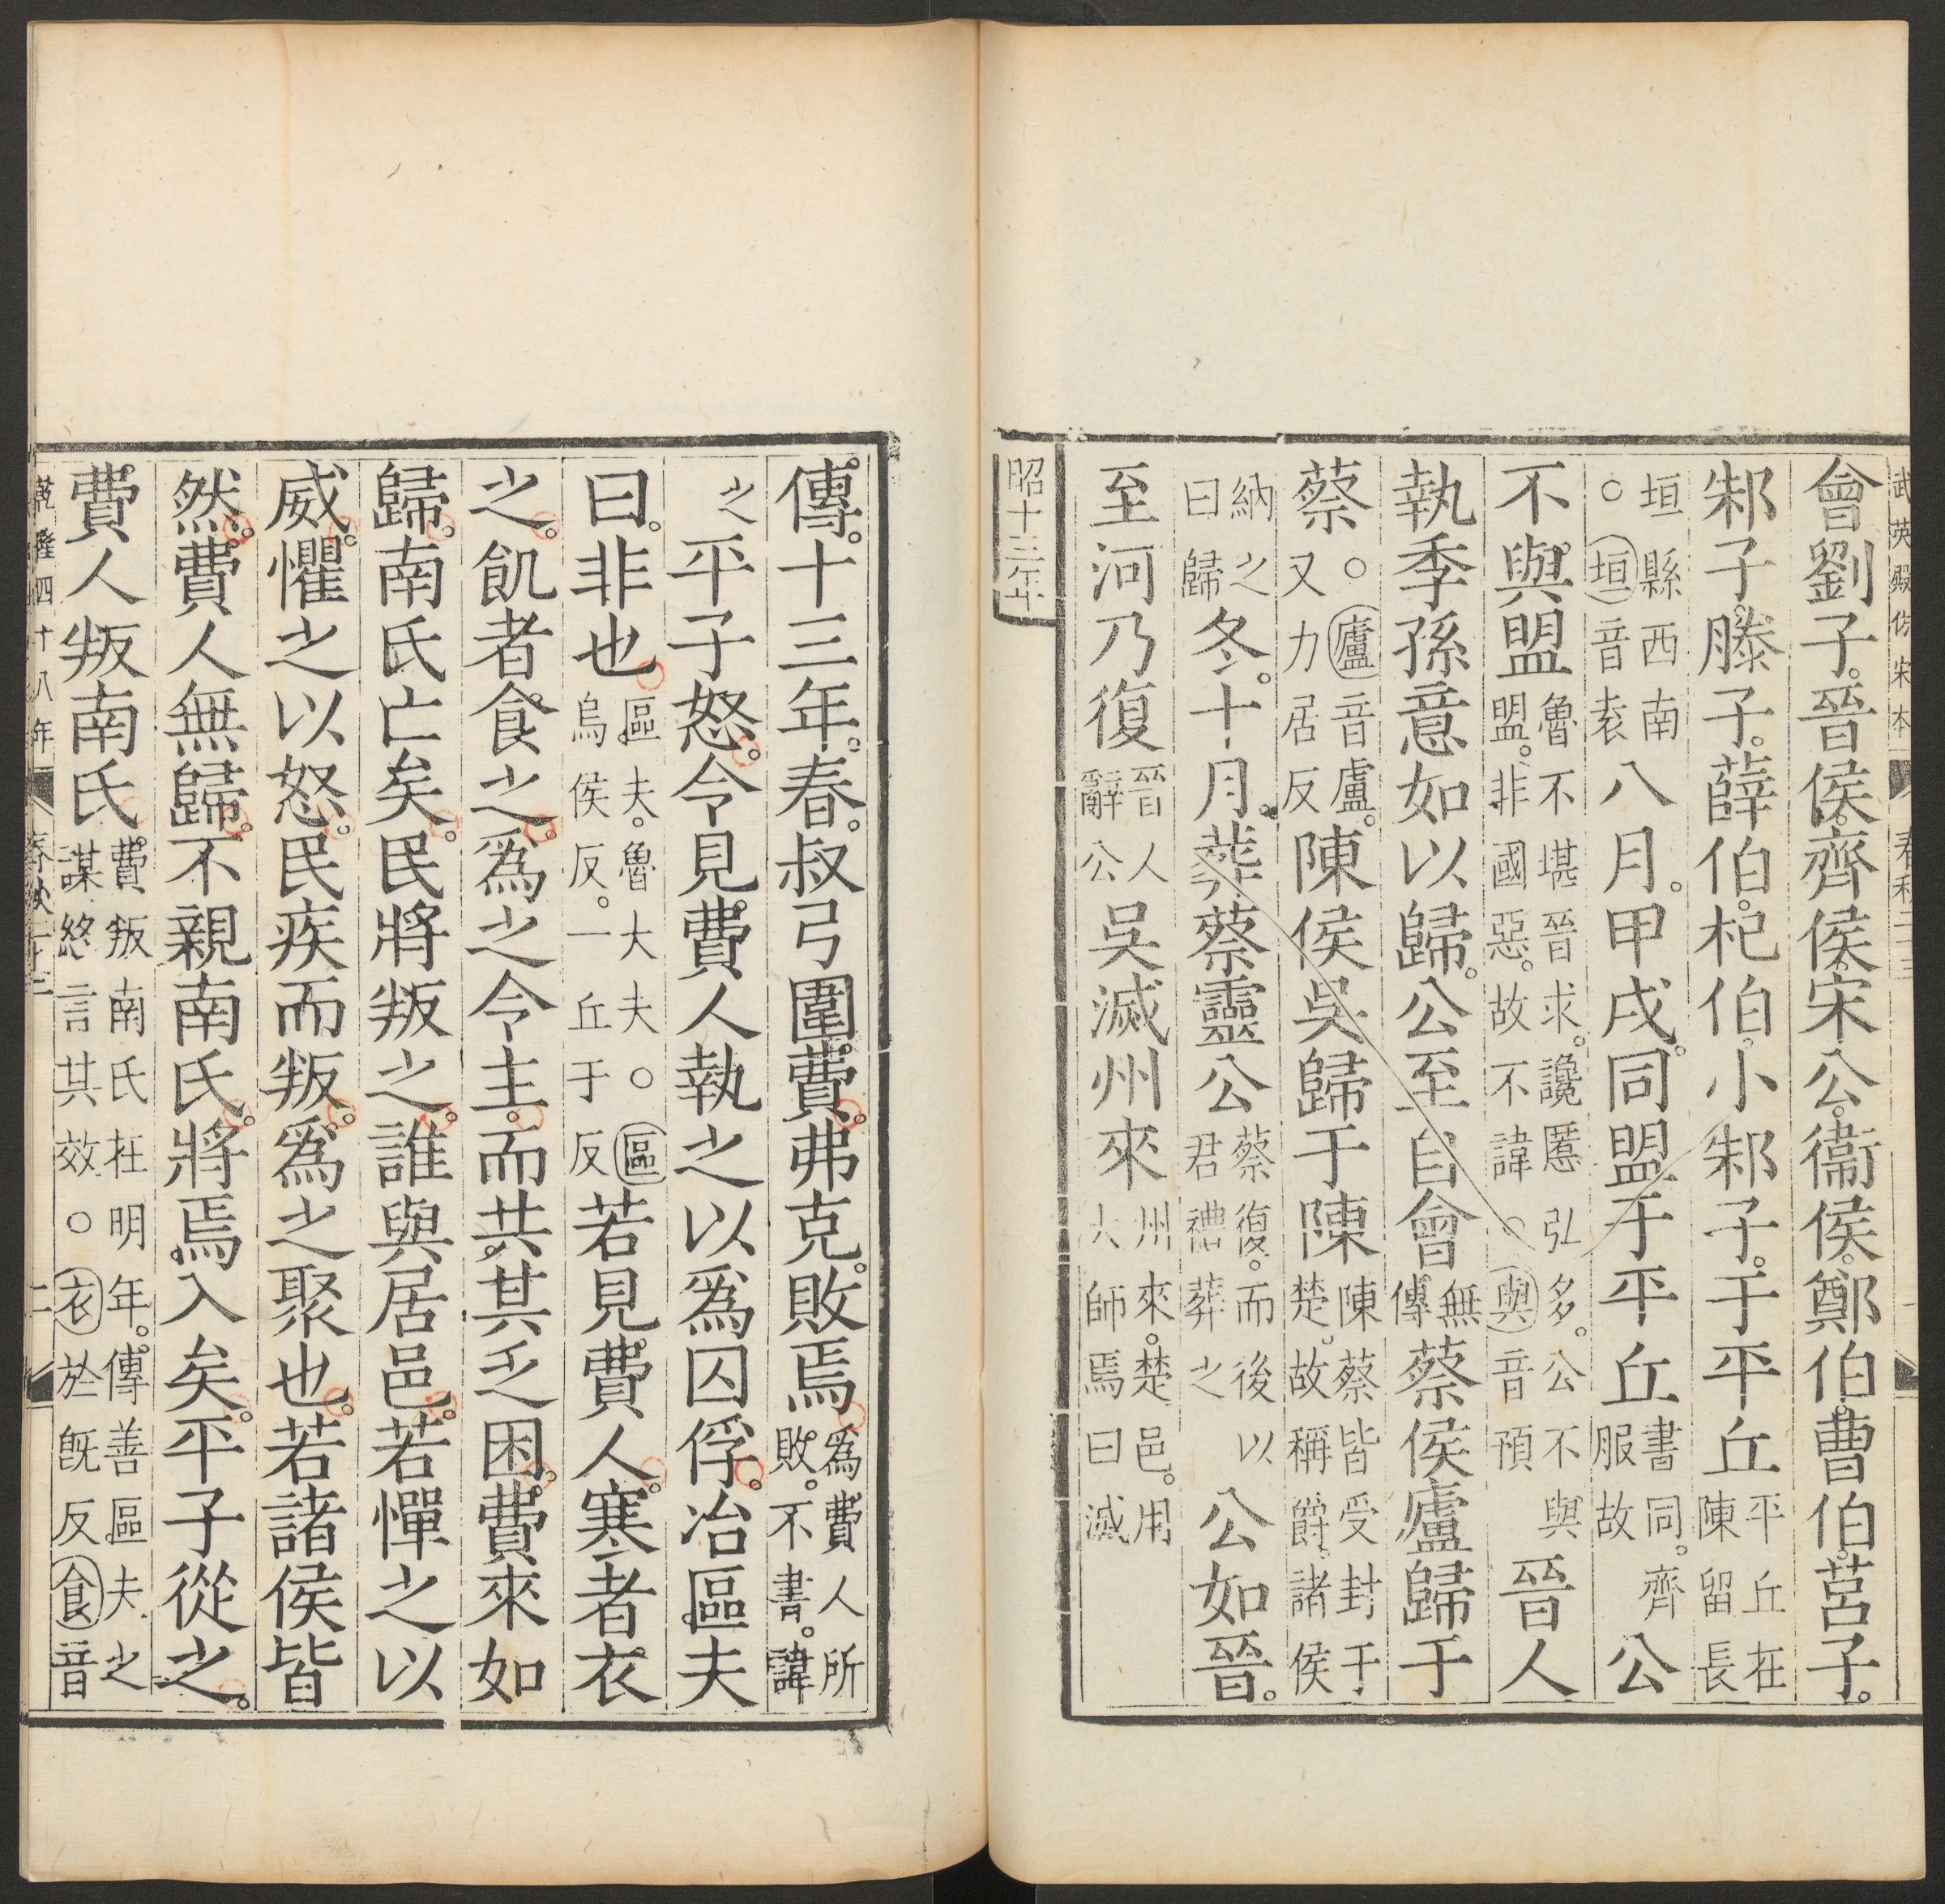 武英殿仿宋本
會劉子晉侯齊侯宋公衞侯鄭伯曹伯莒子
邾子滕子薛伯杞伯小邾子于平丘平丘在陳留長
垣縣西南○垣音袁八月甲戌同盟于平丘書同齊服故公
不與盟魯不堪晉求讒慝弘多公不與盟非國惡故不諱○與音預晉人
執季孫意如以歸公至自會無傳蔡侯廬歸于
蔡○廬音盧又力居反陳侯吳歸于陳陳蔡皆受封于楚故稱爵諸侯
納之曰歸冬十月葬蔡靈公蔡復而後以君禮葬之公如晉
至河乃復晉人辭公吳滅州來州來楚邑用大師焉曰滅
昭十三年
傳十三年春叔弓圍費弗克敗焉爲費人所敗不書諱
之平子怒令見費人執之以爲囚俘冶區夫
曰非也區夫魯大夫○區烏侯反一丘于反若見費人寒者衣
之飢者食之爲之令主而共其乏困費來如
歸南氏亡矣民將叛之誰與居邑若憚之以
威懼之以怒民疾而叛爲之聚也若諸侯皆
然費人無歸不親南氏將焉入矣平子從之
費人叛南氏費叛南氏在明年傳善區夫之謀終言其效○衣於旣反食音
乾隆四十八年 二